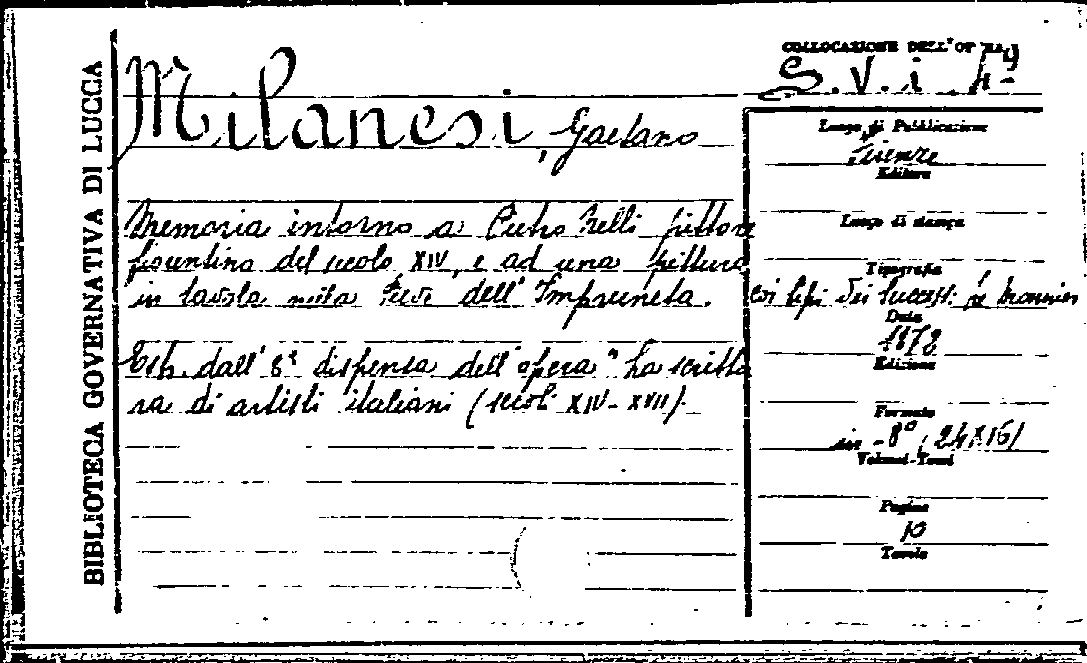 BIBLIOTECA GOVERNATIVA DI LUCCA
Milanesi, Gaetano
Memoria intorno a Pietro Nelli pittore
fiorentino del secolo XIV, e ad una pittura
in tavola nella Pieve dell'Impruneta.
Estr. dall'8ª dispensa dell'opera "La scrittu
ra di artisti italiani (secoli XIV-XVII).
COLLOCAZIONE DELL'OPERA
S. V. i. 4-
Luogo di Pubblicazione
Firenze
Editore
Luogo di stampa
Tipografia
coi tipi dei Success. Le Monnier
Data
1878
Edizione
Formato
in-8° (24X16)
Volumi-Tomi
Pagine
10
Tavole